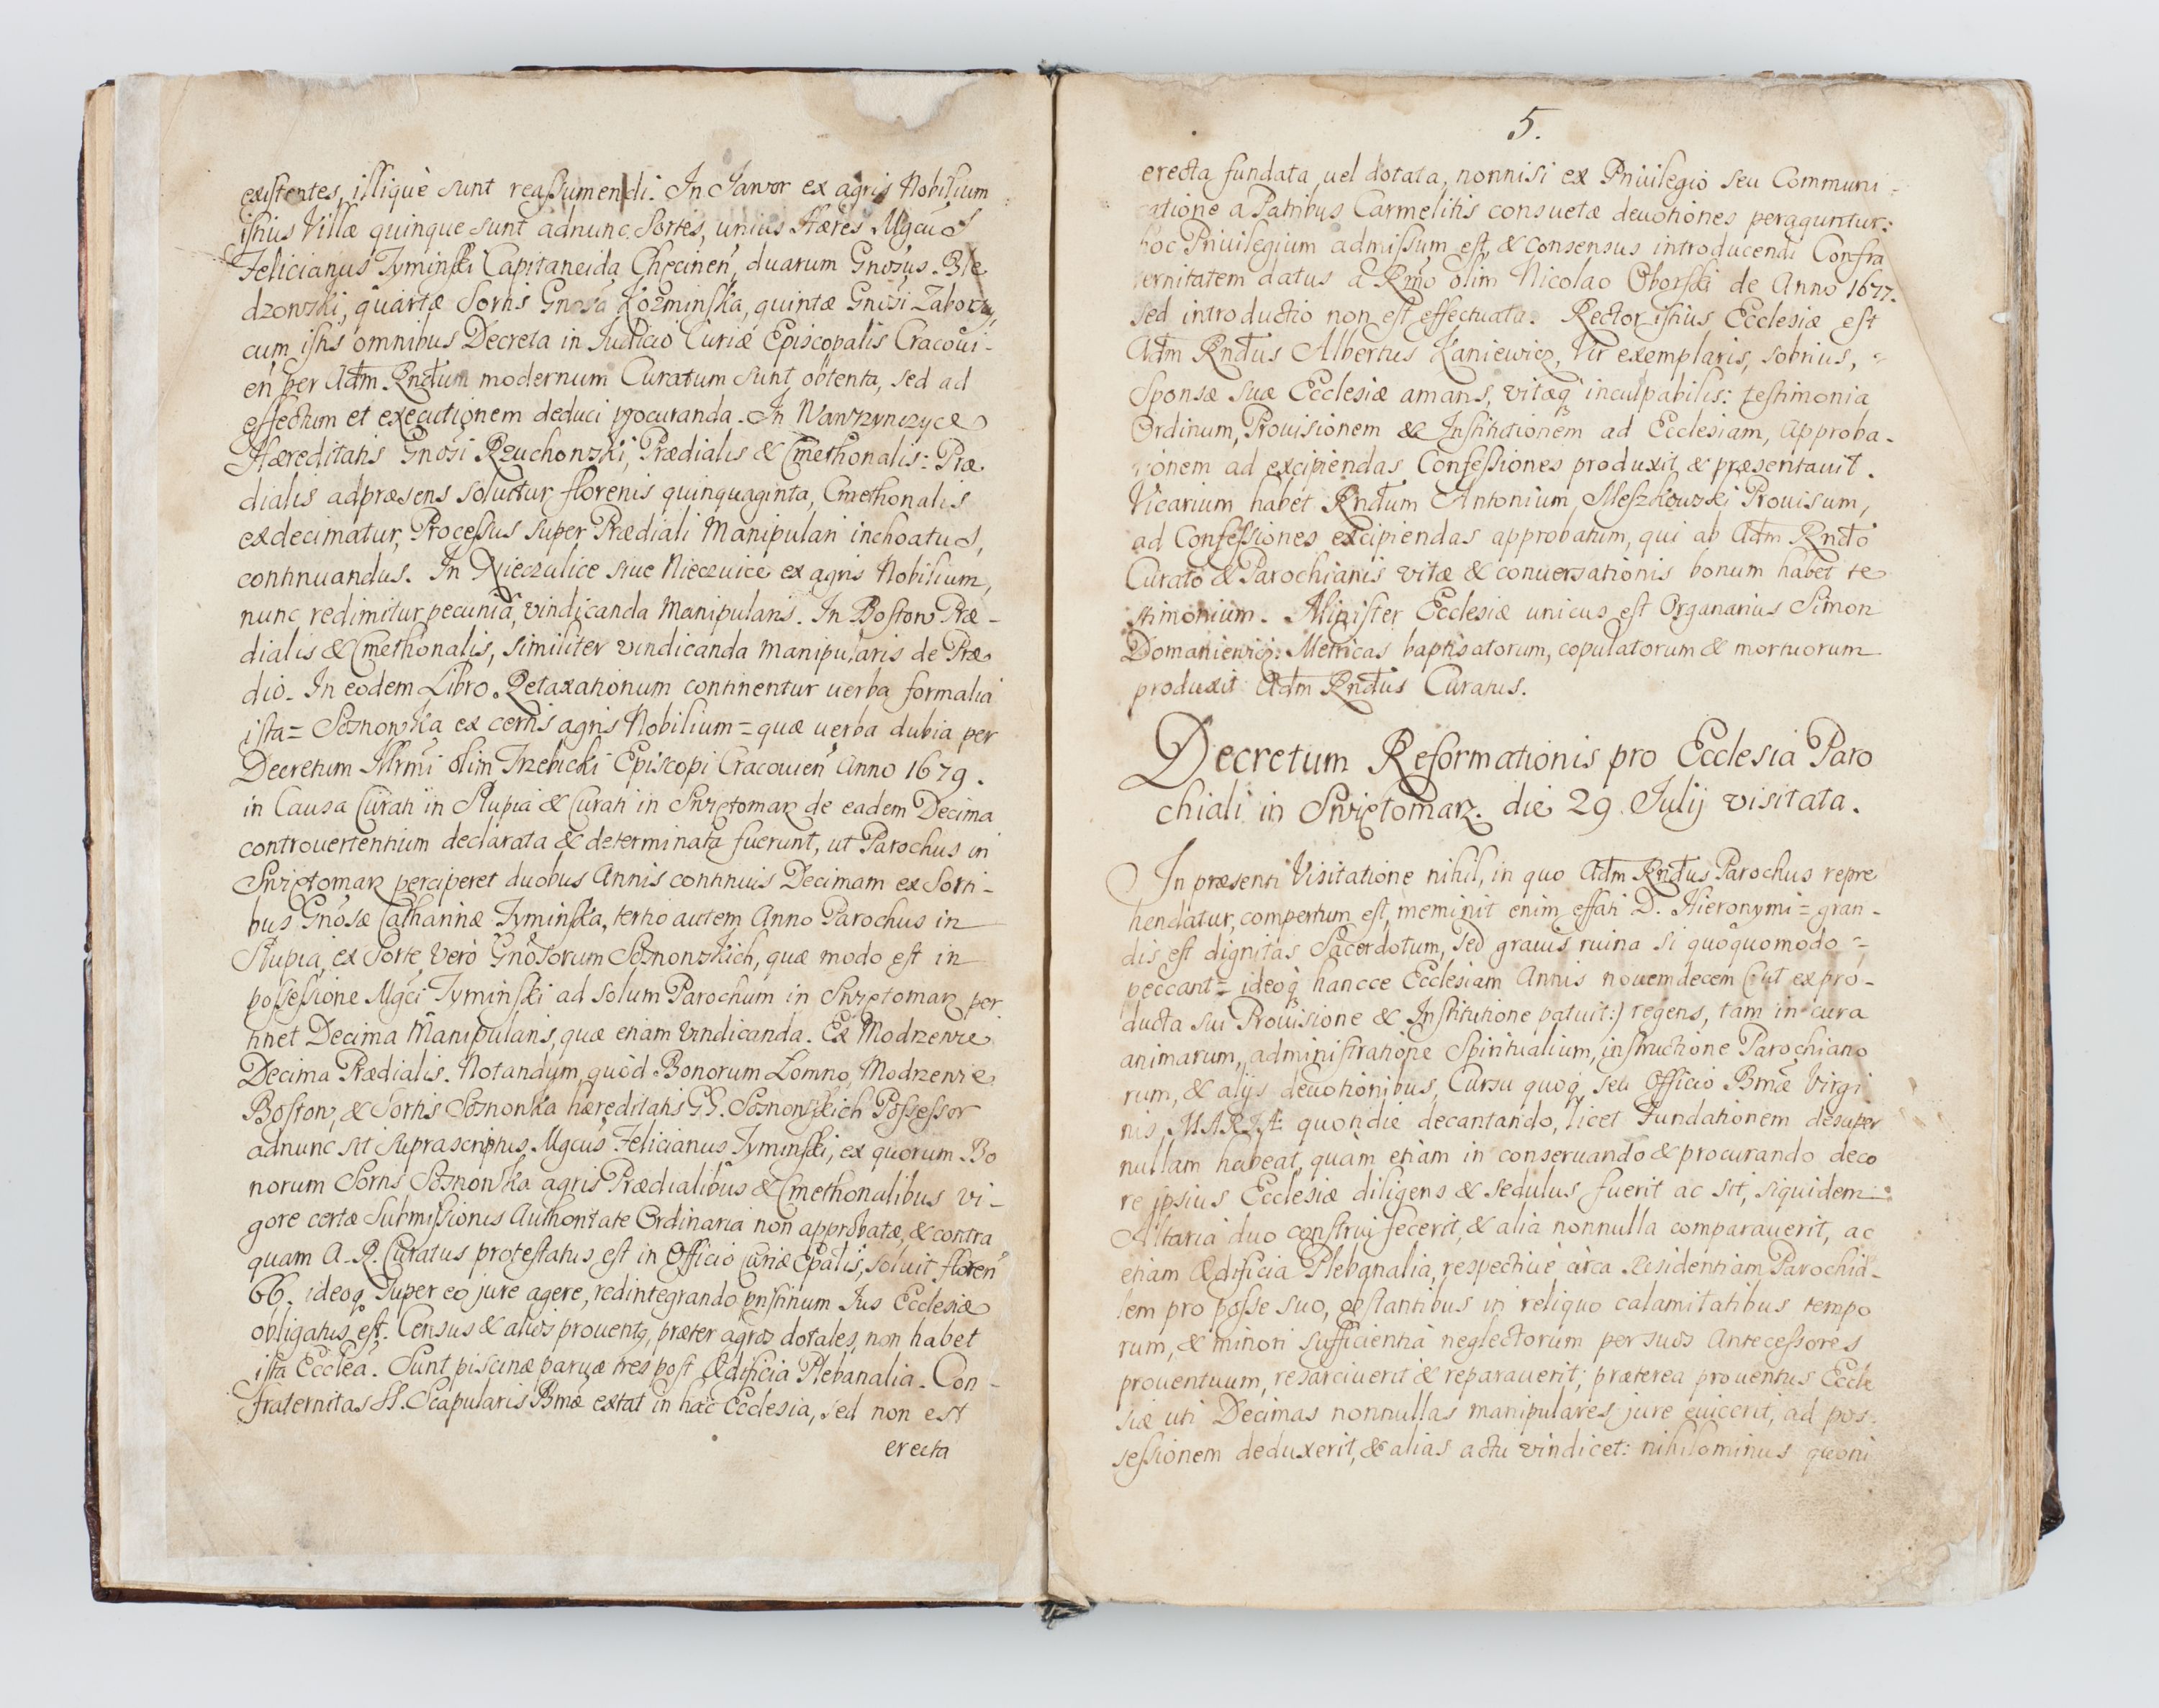 existentes, illiquè sunt reassumendi. In Jawor ex agris Nobilium
istius Villæ quinque sunt adnunc Sortes, unius Hæres Mgcus
Felicianus Tyminski Capitaneida Checinen, duarum Gnosus Ble
dzowski, quartæ Sortis Gnosa Kozminska, quintæ Gnosi Zaborzy,
cum istis omnibus Decreta in Judicio Curiæ Episcopalis Cracovi-
en per Adm Rndum modernum Curatum sunt obtenta, sed ad
effectum et executionem deduci procuranda. In Wawrzynczyce
Hæreditatis Gnosi Rzuchowski, Prædialis & Cmethonalis: Præ
dialis adpræsens solvitur florenis quinquaginta, Cmethonalis
exdecimatur, Processus super Prædiali Manipulari inchoatus,
continuandus. In Nieczulice sive Nieczuice ex agris Nobilium,
nunc redimitur pecuniâ, vindicanda Manipularis. In Boston Præ-
dialis & Cmethonalis, similiter vindicanda manipularis de Præ
dio. In eodem Libro Retaxationum continentur verba formalia
ista = Sosnowka ex certis agris Nobilium = quæ verba dubia per
Decretum Illrmi olim Trzebicki Episcopi Cracovien Anno 1679.
in Causa Curati in Słupia & Curati in Swiętomarz de eadem Decima
controvertentium declarata & determinata fuerunt, ut Parochus in
Swiętomarz perciperet duobus Annis continuis Decimam ex Sorti-
bus Gnosæ Catharinæ Tyminska, tertio autem Anno Parochus in
Słupia, ex Sorte verò Gnosorum Sosnowskich, quæ modo est in
possessione Mgci Tyminski ad solum Parochum in Swiętomarz per
tinet Decima Manipularis, quæ etiam vindicanda. Ex Modrzewie
Decima Prædialis. Notandum, quòd Bonorum Lomno, Modrzewie
Boston, & Sortis Sosnowka hæreditatis GG. Sosnowskich Possessor
adnunc sit suprascriptus Mgcus Felicianus Tyminski, ex quorum Bo
norum Sortis Sosnowka agris Prædialibus & Cmethonalibus vi-
gore certæ Submissionis Authoritate Ordinaria non approbatæ, & contra
quam A. R. Curatus protestatus est in Officio Curiæ Epalis, solvit floren
66. ideoq super eo jure agere, redintegrando pristinum Jus Ecclesiæ
obligatus est. Census & alios provents, præter agros dotales, non habet
ista Ecclea. Sunt piscinæ parvæ tres post Ædificia Plebanalia. Con-
fraternitas S. Scapularis Bmæ extat in hac Ecclesia, sed non est
erecta
5.
erecta fundata, vel dotata, nonnisi ex Privilegio seu Communi-
catione a Patribus Carmelitis consuetæ devotiones peraguntur:
hoc Privilegium admissum est, & consensus introducendi Confra
ternitatem datus a Rmo olim Nicolao Oborski de Anno 1677.
sed introductio non est effectuata. Rector istius Ecclesiæ est
Adm Rndus Albertus Kaniewicz, Vir exemplaris, sobrius,
Sponsæ suæ Ecclesiæ amans, vitæq inculpabilis: testimonia
Ordinum, Provisionem & Institutionem ad Ecclesiam, Approba-
tionem ad excipiendas Confessiones produxit & præsentavit.
Vicarium habet Rndum Antonium Meszkowski Provisum,
ad Confessiones excipiendas approbatum, qui ab Adm Rndo
Curato & Parochianis vitæ & conversationis bonum habet te
stimonium. Minister Ecclesiæ unicus est Organarius Simon
Domaniewicz. Metricas baptisatorum, copulatorum & mortuorum
produxit Adm Rndus Curatus.
Decretum Reformationis pro Ecclesia Paro
chiali in Swiętomarz. die 29 Julij visitata.
In præsenti Visitatione nihil, in quo Adm Rndus Parochus repre
hendatur, compertum est, meminit enim effati D. Hieronymi = gran-
dis est dignitas Sacerdotum, sed gravis ruina si quoquomodo =
peccant = ideoq hancce Ecclesiam Annis novemdecem (ut ex pro-
ducta sui Provisione & Institutione patuit:) regens, tam in cura
animarum, administratione Spiritualium, instructione Parochiano
rum, & alijs devotionibus, Cursu quoq seu Officio Bmæ Virgi
nis MARIÆ quotidie decantando, licet Fundationem desuper
nullam habeat, quàm etiam in conservando & procurando deco
re ipsius Ecclesiæ diligens & sedulus fuerit ac sit, siquidem
Altaria duo construi fecerit, & alia nonnulla comparaverit, ac
etiam Ædificia Plebanalia, respectivè circa Residentiam Parochia-
lem pro posse suo, obstantibus in reliquo calamitatibus tempo
rum, & minori sufficientia neglectorum per suos Antecessores
proventuum, resarciverit & reparaverit; præterea proventus Eccle
siæ uti Decimas nonnullas manipulares jure evicerit, ad pos-
sessionem deduxerit, & alias actu vindicet: nihilominus quoni